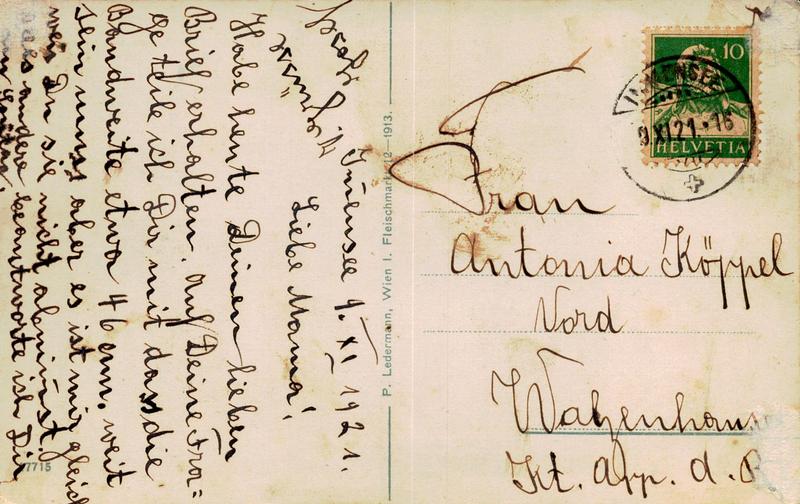 Immensee 9. XI 1921.
Liebe Mama!
Habe heute Deinen lieben
Brief erhalten. Auf Deine Fra=
ge teile ich Dir mit dass die
Bandweite etwa 46 cm. weit
sein muss aber es ist mir gleich
wen Du sie nicht abnimst.
das andere beantworte ich Dir
P. Ledermann, Wien I. Fleischmarkt 12—1913.
7715
10
HELVETIA
IMMENSEE
9.XI.21.-16
Frau
Antonia Köppel
Nord
Walzenhaus
Kt. App. a. R